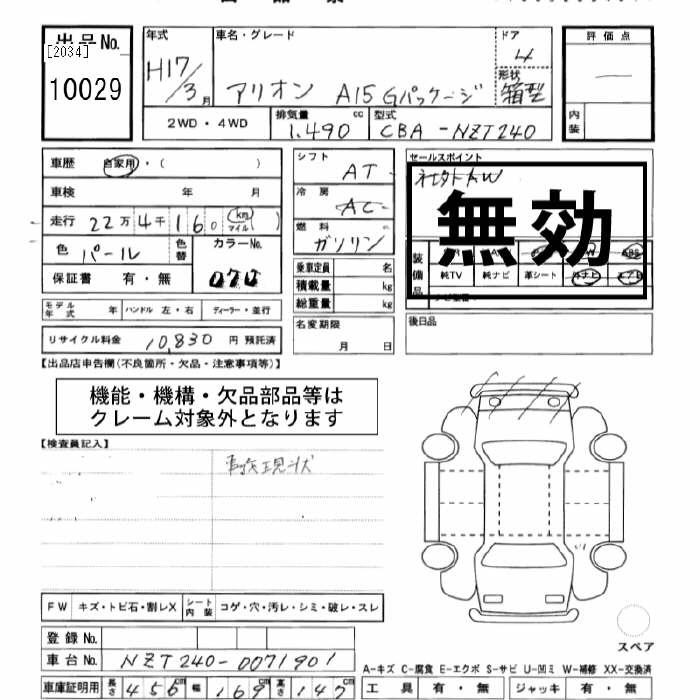 出品No.
[2034]
10029
年式
H17/3月
車名・グレード
アリオン A15 Gパッケージ
ドア
4
形状
箱型
評価点
内装
2WD・4WD
排気量 cc
1,490
型式
CBA-NZT240
車歴 自家用・( )
車検 年 月
走行 22万4千160 (km マイル)
色 パール 色替 カラーNo.
070
保証書 有・無
モデル年式 年 ハンドル 左・右 ディーラー・並行
リサイクル料金 10,830 円 預託済
シフト AT
冷房 AC
燃料 ガソリン
乗車定員 名
積載量 kg
総重量 kg
名変期限
月 日
セールスポイント
無効
装備品
ABS
純TV 純ナビ 革シート 外ナビ エアB
後日品
【出品店申告欄(不良箇所・欠品・注意事項等)】
機能・機構・欠品部品等は
クレーム対象外となります
【検査員記入】
事故現状
FW キズ・トビ石・割レX シート内装 コゲ・穴・汚レ・シミ・破レ・スレ
登録No.
車台No. NZT240-0071901
車庫証明用 長さ 456cm 幅 169cm 高さ 147cm
スペア
A-キズ C-腐食 E-エクボ S-サビ U-凹ミ W-補修 XX-交換済
工具 有・無 ジャッキ 有・無